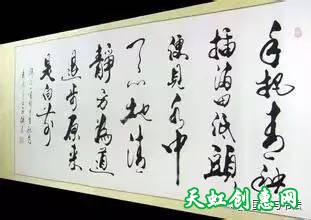 手把青秧
插滿田低頭
便見水中
天心地清
靜方為道
退步原来
是向前
天虹创意网